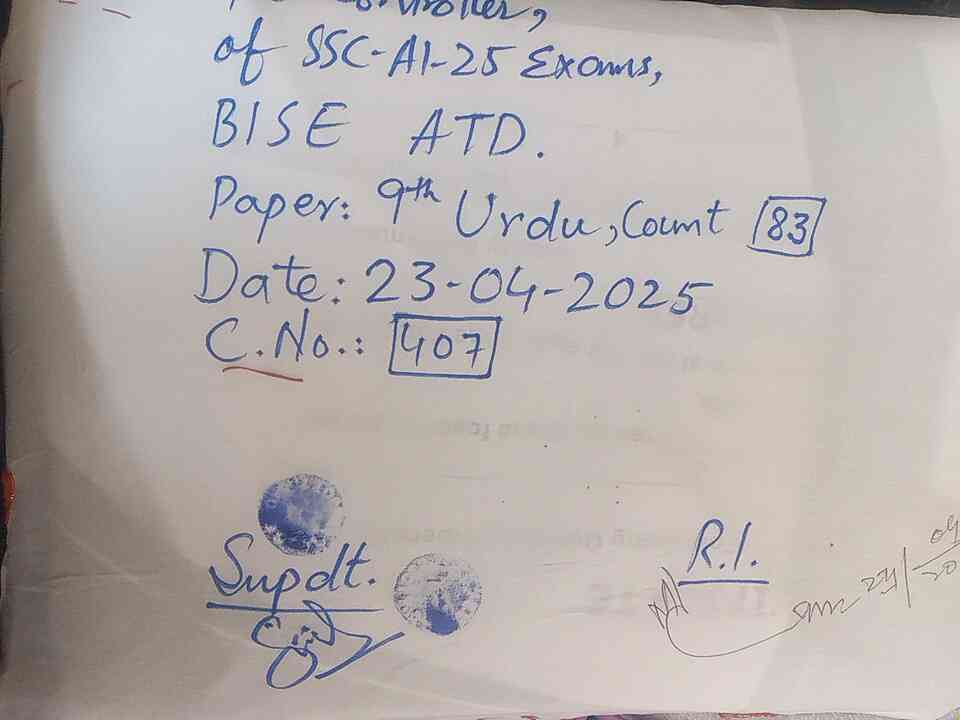 Controller,
of SSC-A1-25 Exams,
BISE ATD.
Paper: 9th Urdu, Count 83
Date: 23-04-2025
C.No.: 407
Supdt.
R.I.